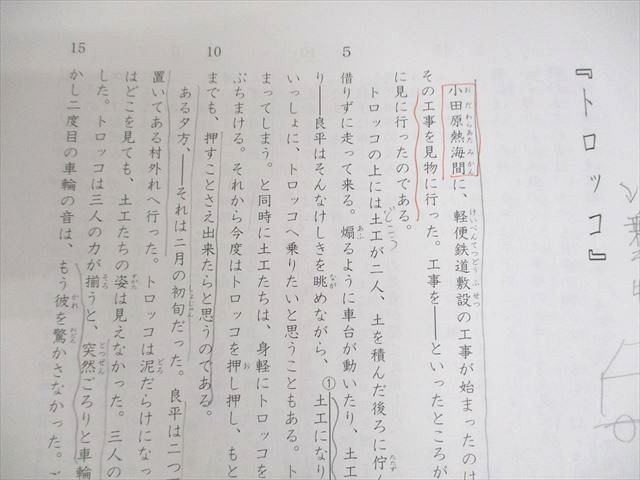 『トロッコ』
小田原熱海間に、軽便鉄道敷設の工事が始まったのは
その工事を見物に行った。工事を――といったところが
に見に行ったのである。
トロッコの上には土工が二人、土を積んだ後ろに佇ん
5
借りずに走って来る。煽るように車台が動いたり、土工
り――良平はそんなけしきを眺めながら、①土工になり
いっしょに、トロッコへ乗りたいと思うこともある。ト
まってしまう。と同時に土工たちは、身軽にトロッコを
ぶちまける。それから今度はトロッコを押し押し、もと
10
までも、押すことさえ出来たらと思うのである。
ある夕方、――それは二月の初旬だった。良平は二つ
置いてある村外れへ行った。トロッコは泥だらけになっ
はどこを見ても、土工たちの姿は見えなかった。三人の
した。トロッコは三人の力が揃うと、突然ごろりと車輪
15
かし二度目の車輪の音は、もう彼を驚かさなかった。